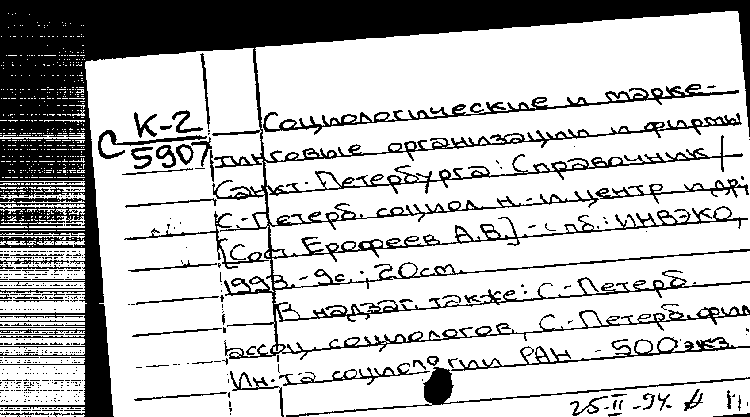 К-2
С 5907
Социологические и марке-
тинговые организации и фирмы
Санкт-Петербурга: Справочник /
С.-Петерб. социол. н.-и. центр и др.;
[Сост. Ерофеев А.В.] - СПб.: ИНВЭКО,
1993. - 9с.; 20см.
В надзаг. также: С.-Петерб.
ассоц. социологов, С.-Петерб. фил.
Ин-та социологии РАН. - 500 экз.
25-II-94.